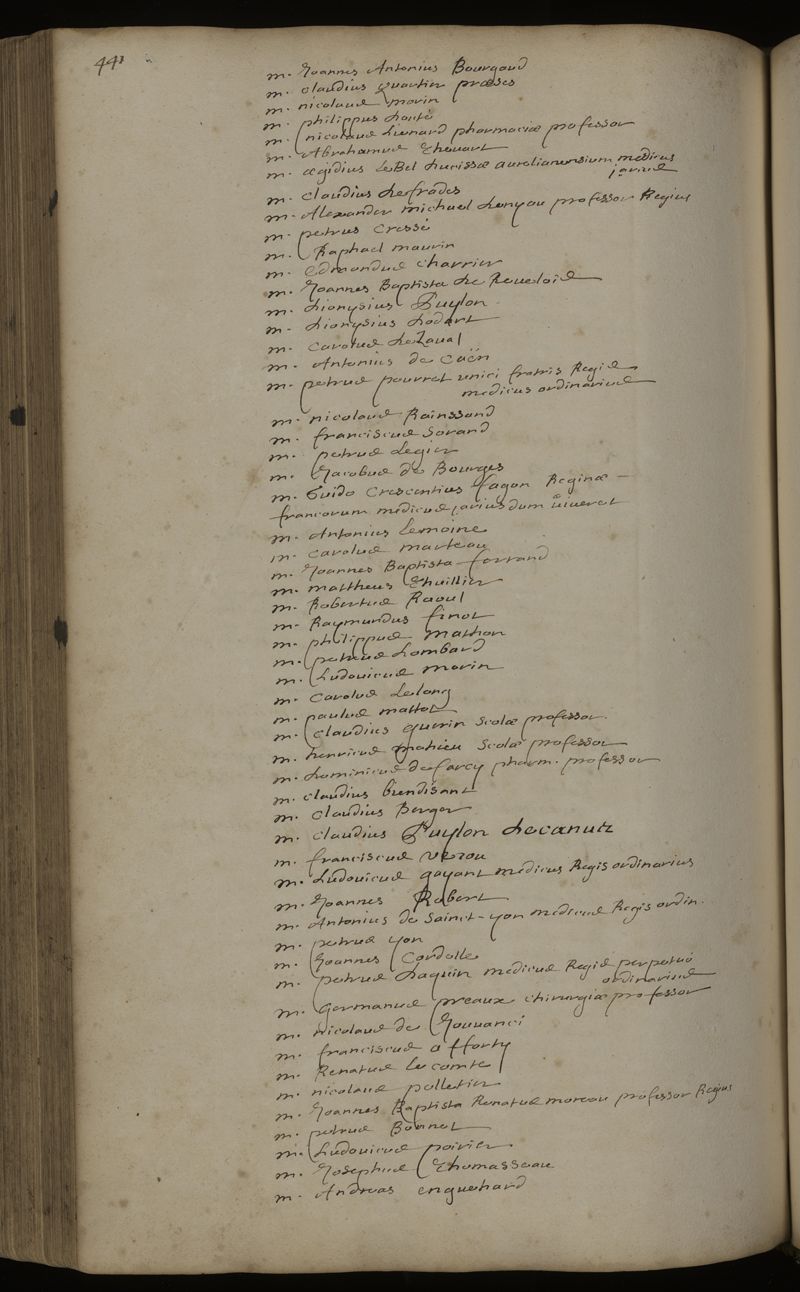 441
m. Joannes Antonius Bourgaud
m. claudius quartier præses
m. nicolaus morin
m. philippus douté
m. nicolaus Lienard pharmaciæ professor
m. Abrahamus Thouart
m. ægidius LeBel ducissæ aurelianensium medicus
primus
m. claudius desfrades
m. Alexander michael denyau professor Regius
m. petrus Cressé
m. Raphael maurin
m. Edmondus charrier
m. Joannes Baptista de Reuelois
m. dionysius Puylon
m. dionysius dodart
m. Carolus deLaual
m. Antonius de Caën
m. petrus pourret unici fratris Regis
medicus ordinarius
m. nicolaus Rainssand
m. franciscus Sorand
m. petrus Legier
m. Jacobus de Bourges
m. Guido Crescentius fagon Reginæ
francorum medicus primus dum viueret
m. Antonius Lemoine
m. Carolus marteau
m. Joannes Baptista ferrand
m. mattheus Thuillier
m. Robertus Raoul
m. Raymundus finot
m. philippus Matthon
m. petrus Lombard
m. Ludouicus morin
m. Carolus Lelong
m. paulus mattot
m. claudius guerin Scolæ professor.
m. henricus mahieu Scolæ professor
m. dominicus de farcy pharm. professor
m. claudius brendisant
m. claudius Berger
m. claudius Puylon decanus
m. franciscus vezou
m. Ludouicus gayant medicus Regis ordinarius
m. Joannes Robert
m. Antonius de Sainct-yon medicus Regis ordin.
m. petrus yon
m. Joannes Cordelle
m. petrus daquin medicus Regis perpetuò
ordinarius
m. Germanus preaux chirurgiæ professor
m. nicolaus de Jouuanci
m. franciscus afforty
m. Renatus Le comte
m. nicolaus pelletier
m. Joannes Baptista Renatus moreau professor Regius
m. petrus Bonnet
m. Ludouicus poirier
m. Josephus Thomasseau
m. Andreas enguehard